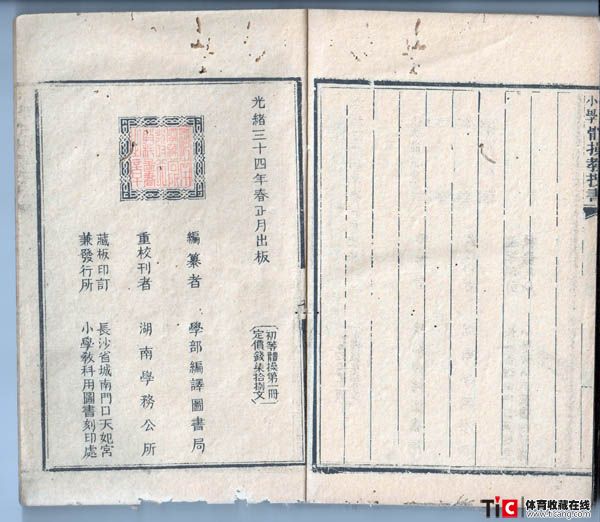 小學體操教授書
光緒三十四年春正月出板
初等體操第一冊
定價錢柒拾捌文
編纂者 學部編譯圖書局
重校刊者 湖南學務公所
藏板印訂
兼發行所
長沙省城南門口天妃宮
小學教科用圖書刻印處
TiC 体育收藏在线
www.ticang.com